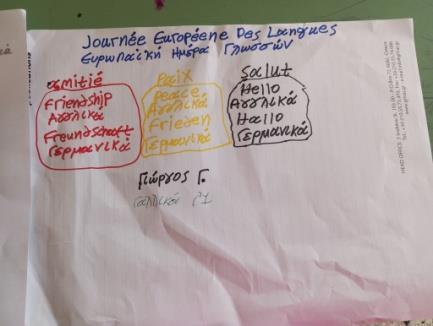 Journée Européene Des Langues
Ευρωπαϊκή Ημέρα Γλωσσών
amitié
Friendship
Αγγλικά
Freundschaft
Γερμανικά
Paix
Peace
Αγγλικά
Frieden
Γερμανικά
Salut
Hello
Αγγλικά
Hallo
Γερμανικά
Γιώργος Γ.
Γαλλικά Γ1
HEAD OFFICE